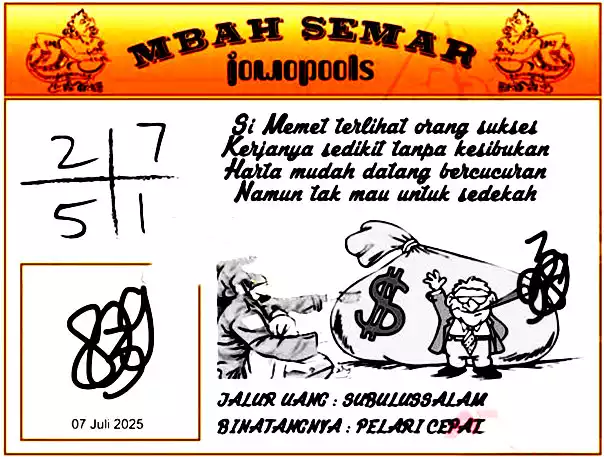 MBAH SEMAR
jowopools
Si Memet terlihat orang sukses
Kerjanya sedikit tanpa kesibukan
Harta mudah datang bercucuran
Namun tak mau untuk sedekah
2 7
5 1
$
07 Juli 2025
JALUR UANG : SUBULUSSALAM
BINATANGNYA : PELARI CEPAT